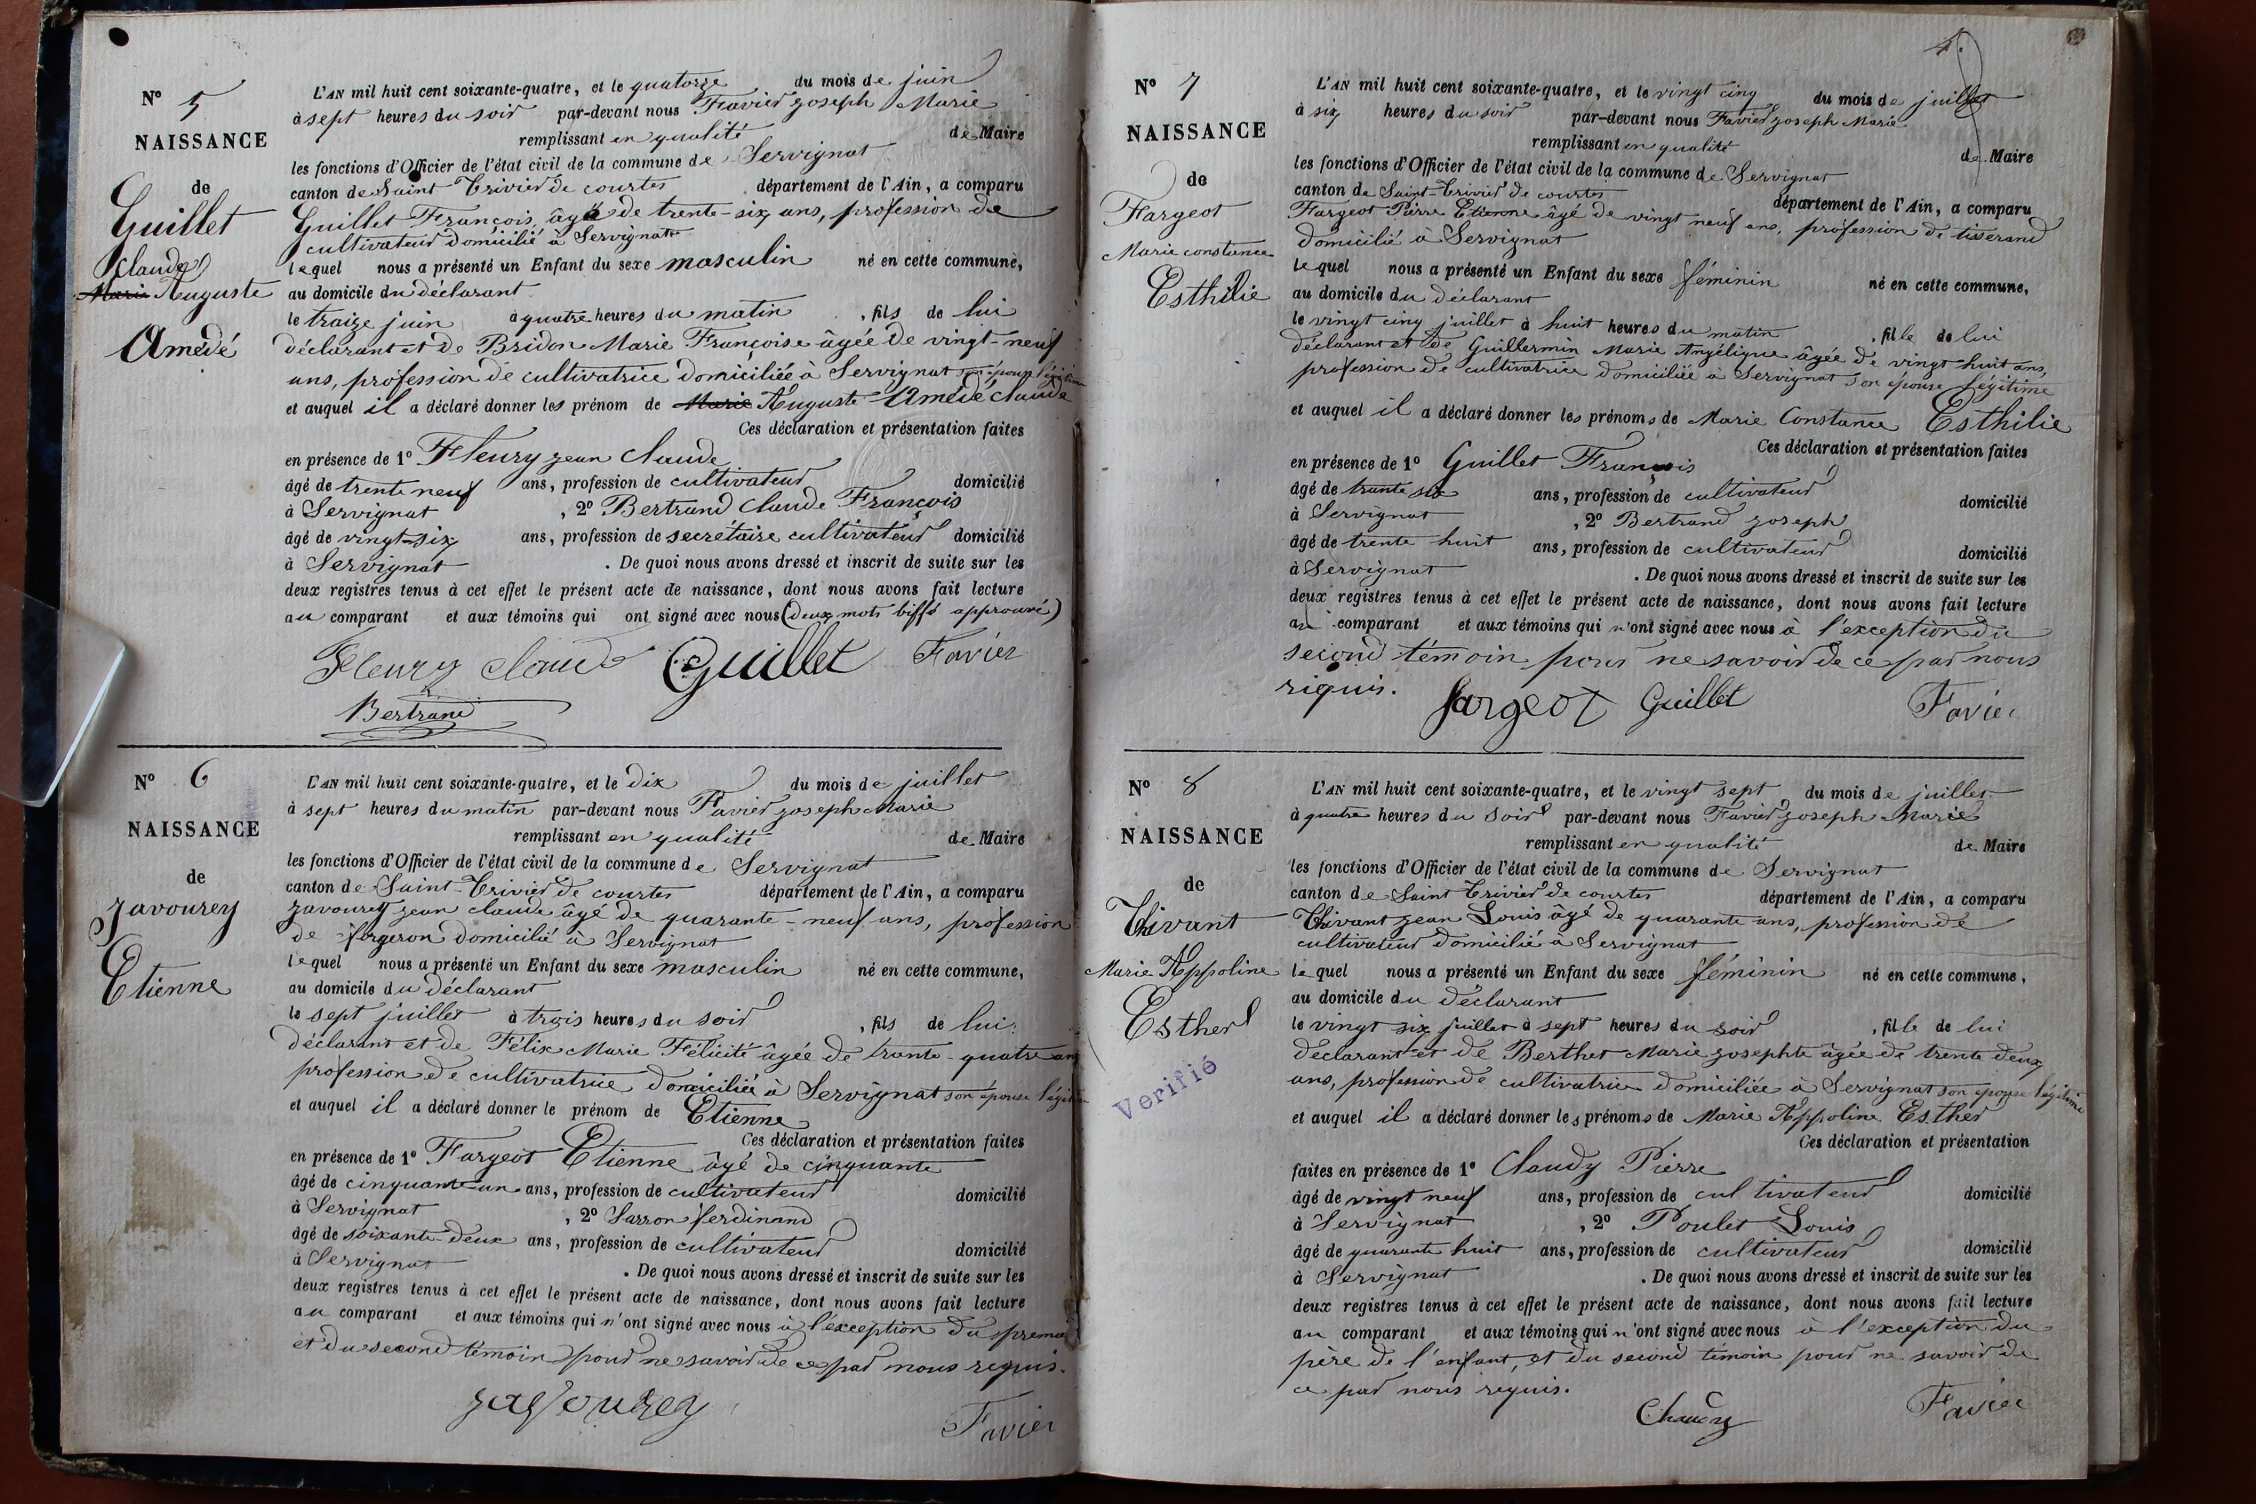 Nº 5
NAISSANCE
de
Guillet
Claude
Marie Auguste
Amédé
L'AN mil huit cent soixante-quatre, et le quatorze du mois de juin
à sept heures du soir par-devant nous Favier Joseph Marie
remplissant en qualité de Maire
les fonctions d'Officier de l'état civil de la commune de Servignat
canton de Saint Trivier de courtes département de l'Ain, a comparu
Guillet François, âgé de trente-six ans, profession de
cultivateur domicilié à Servignat
lequel nous a présenté un Enfant du sexe masculin né en cette commune,
au domicile du déclarant
le traize juin à quatre heures du matin, fils de lui
déclarant et de Bridon Marie Françoise âgée de vingt-neuf
ans, profession de cultivatrice domiciliée à Servignat son épouse légitime
et auquel il a déclaré donner les prénom de Marie Auguste Amédé claude
Ces déclaration et présentation faites
en présence de 1º Fleury jean Claude
âgé de trente neuf ans, profession de cultivateur domicilié
à Servignat, 2º Bertrand Claude François
âgé de vingt-six ans, profession de secrétaire cultivateur domicilié
à Servignat. De quoi nous avons dressé et inscrit de suite sur les
deux registres tenus à cet effet le présent acte de naissance, dont nous avons fait lecture
au comparant et aux témoins qui ont signé avec nous (deux mots biffé approuvé)
Fleury Claude Guillet Favier
Bertrand
Nº 6
NAISSANCE
de
Javourey
Etienne
L'AN mil huit cent soixante-quatre, et le Dix du mois de juillet
à sept heures du matin par-devant nous Favier joseph Marie
remplissant en qualité de Maire
les fonctions d'Officier de l'état civil de la commune de Servignat
canton de Saint-Trivier de courtes département de l'Ain, a comparu
Javourey jean claude âgé de quarante-neuf ans, profession
de forgeron domicilié à Servignat
lequel nous a présenté un Enfant du sexe masculin né en cette commune,
au domicile du déclarant
le sept juillet à trois heures du soir, fils de lui
déclarant et de Félix Marie Félicité âgée de trente-quatre ans
profession de cultivatrice domiciliée à Servignat son épouse légitime
et auquel il a déclaré donner le prénom de Etienne
Ces déclaration et présentation faites
en présence de 1º Fargeot Etienne âgé de cinquante
âgé de cinquante-un ans, profession de cultivateur domicilié
à Servignat, 2º Sarron ferdinand
âgé de soixante-deux ans, profession de cultivateur domicilié
à Servignat. De quoi nous avons dressé et inscrit de suite sur les
deux registres tenus à cet effet le présent acte de naissance, dont nous avons fait lecture
au comparant et aux témoins qui n'ont signé avec nous à l'exception du premier
et du second témoin pour ne savoir de ce par nous requis.
Javourey
Favier
Nº 7
NAISSANCE
de
Fargeot
Marie constance
Esthilie
L'AN mil huit cent soixante-quatre, et le vingt cinq du mois de juillet
à six heures du soir par-devant nous Favier Joseph Marie
remplissant en qualité de Maire
les fonctions d'Officier de l'état civil de la commune de Servignat
canton de Saint-Trivier de courtes département de l'Ain, a comparu
Fargeot Pierre Etienne âgé de vingt neuf ans, profession de tisserand
domicilié à Servignat
lequel nous a présenté un Enfant du sexe féminin né en cette commune,
au domicile du déclarant
le vingt cinq juillet à huit heures du matin, fille de lui
déclarant et de Guillermin Marie Angélique âgée de vingt huit ans,
profession de cultivatrice domiciliée à Servignat son épouse légitime
et auquel il a déclaré donner les prénoms de Marie Constance Esthilie
Ces déclaration et présentation faites
en présence de 1º Guillet François
âgé de trente six ans, profession de cultivateur domicilié
à Servignat, 2º Bertrand joseph
âgé de trente huit ans, profession de cultivateur domicilié
à Servignat. De quoi nous avons dressé et inscrit de suite sur les
deux registres tenus à cet effet le présent acte de naissance, dont nous avons fait lecture
au comparant et aux témoins qui n'ont signé avec nous à l'exception du
second témoin pour ne savoir de ce par nous
riquis.
Fargeot Guillet Favier
Nº 8
NAISSANCE
de
Thivant
Marie Appoline
Esther
Verifié
L'AN mil huit cent soixante-quatre, et le vingt sept du mois de juillet
à quatre heures du soir par-devant nous Favier Joseph Marie
remplissant en qualité de Maire
les fonctions d'Officier de l'état civil de la commune de Servignat
canton de Saint Trivier de courtes département de l'Ain, a comparu
Thivant jean Louis âgé de quarante ans, profession de
cultivateur domicilié à Servignat
lequel nous a présenté un Enfant du sexe féminin né en cette commune,
au domicile du déclarant
le vingt six juillet à sept heures du soir, fille de lui
déclarant et de Berthet Marie josephte âgée de trente deux
ans, profession de cultivatrice domiciliée à Servignat son épouse légitime
et auquel il a déclaré donner les prénoms de Marie Appoline Esther
Ces déclaration et présentation
faites en présence de 1º Claudy Pierre
âgé de vingt neuf ans, profession de cultivateur domicilié
à Servignat, 2º Poulet Louis
âgé de quarante huit ans, profession de cultivateur domicilié
à Servignat. De quoi nous avons dressé et inscrit de suite sur les
deux registres tenus à cet effet le présent acte de naissance, dont nous avons fait lecture
au comparant et aux témoins qui n'ont signé avec nous à l'exception du
père de l'enfant, et du second témoin pour ne savoir de
ce par nous requis.
Chaudy
Favier